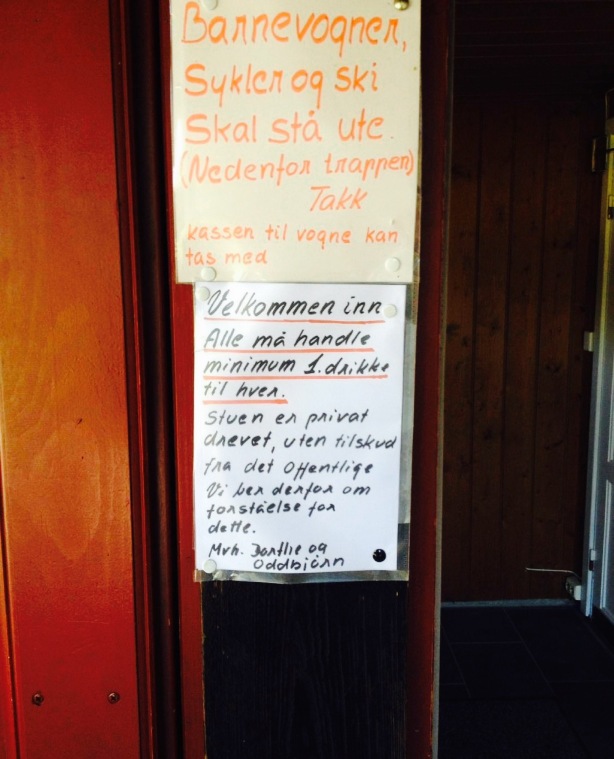 Barnevogner,
Sykler og ski
Skal stå ute.
(Nedenfor trappen)
Takk
kassen til vogne kan
tas med
Velkommen inn
Alle må handle
minimum 1.drikke
til hver.
Stuen er privat
drevet, uten tilskud
fra det offentlige
Vi ber derfor om
forståelse for
dette.
Mvh. og
Oddbjørn